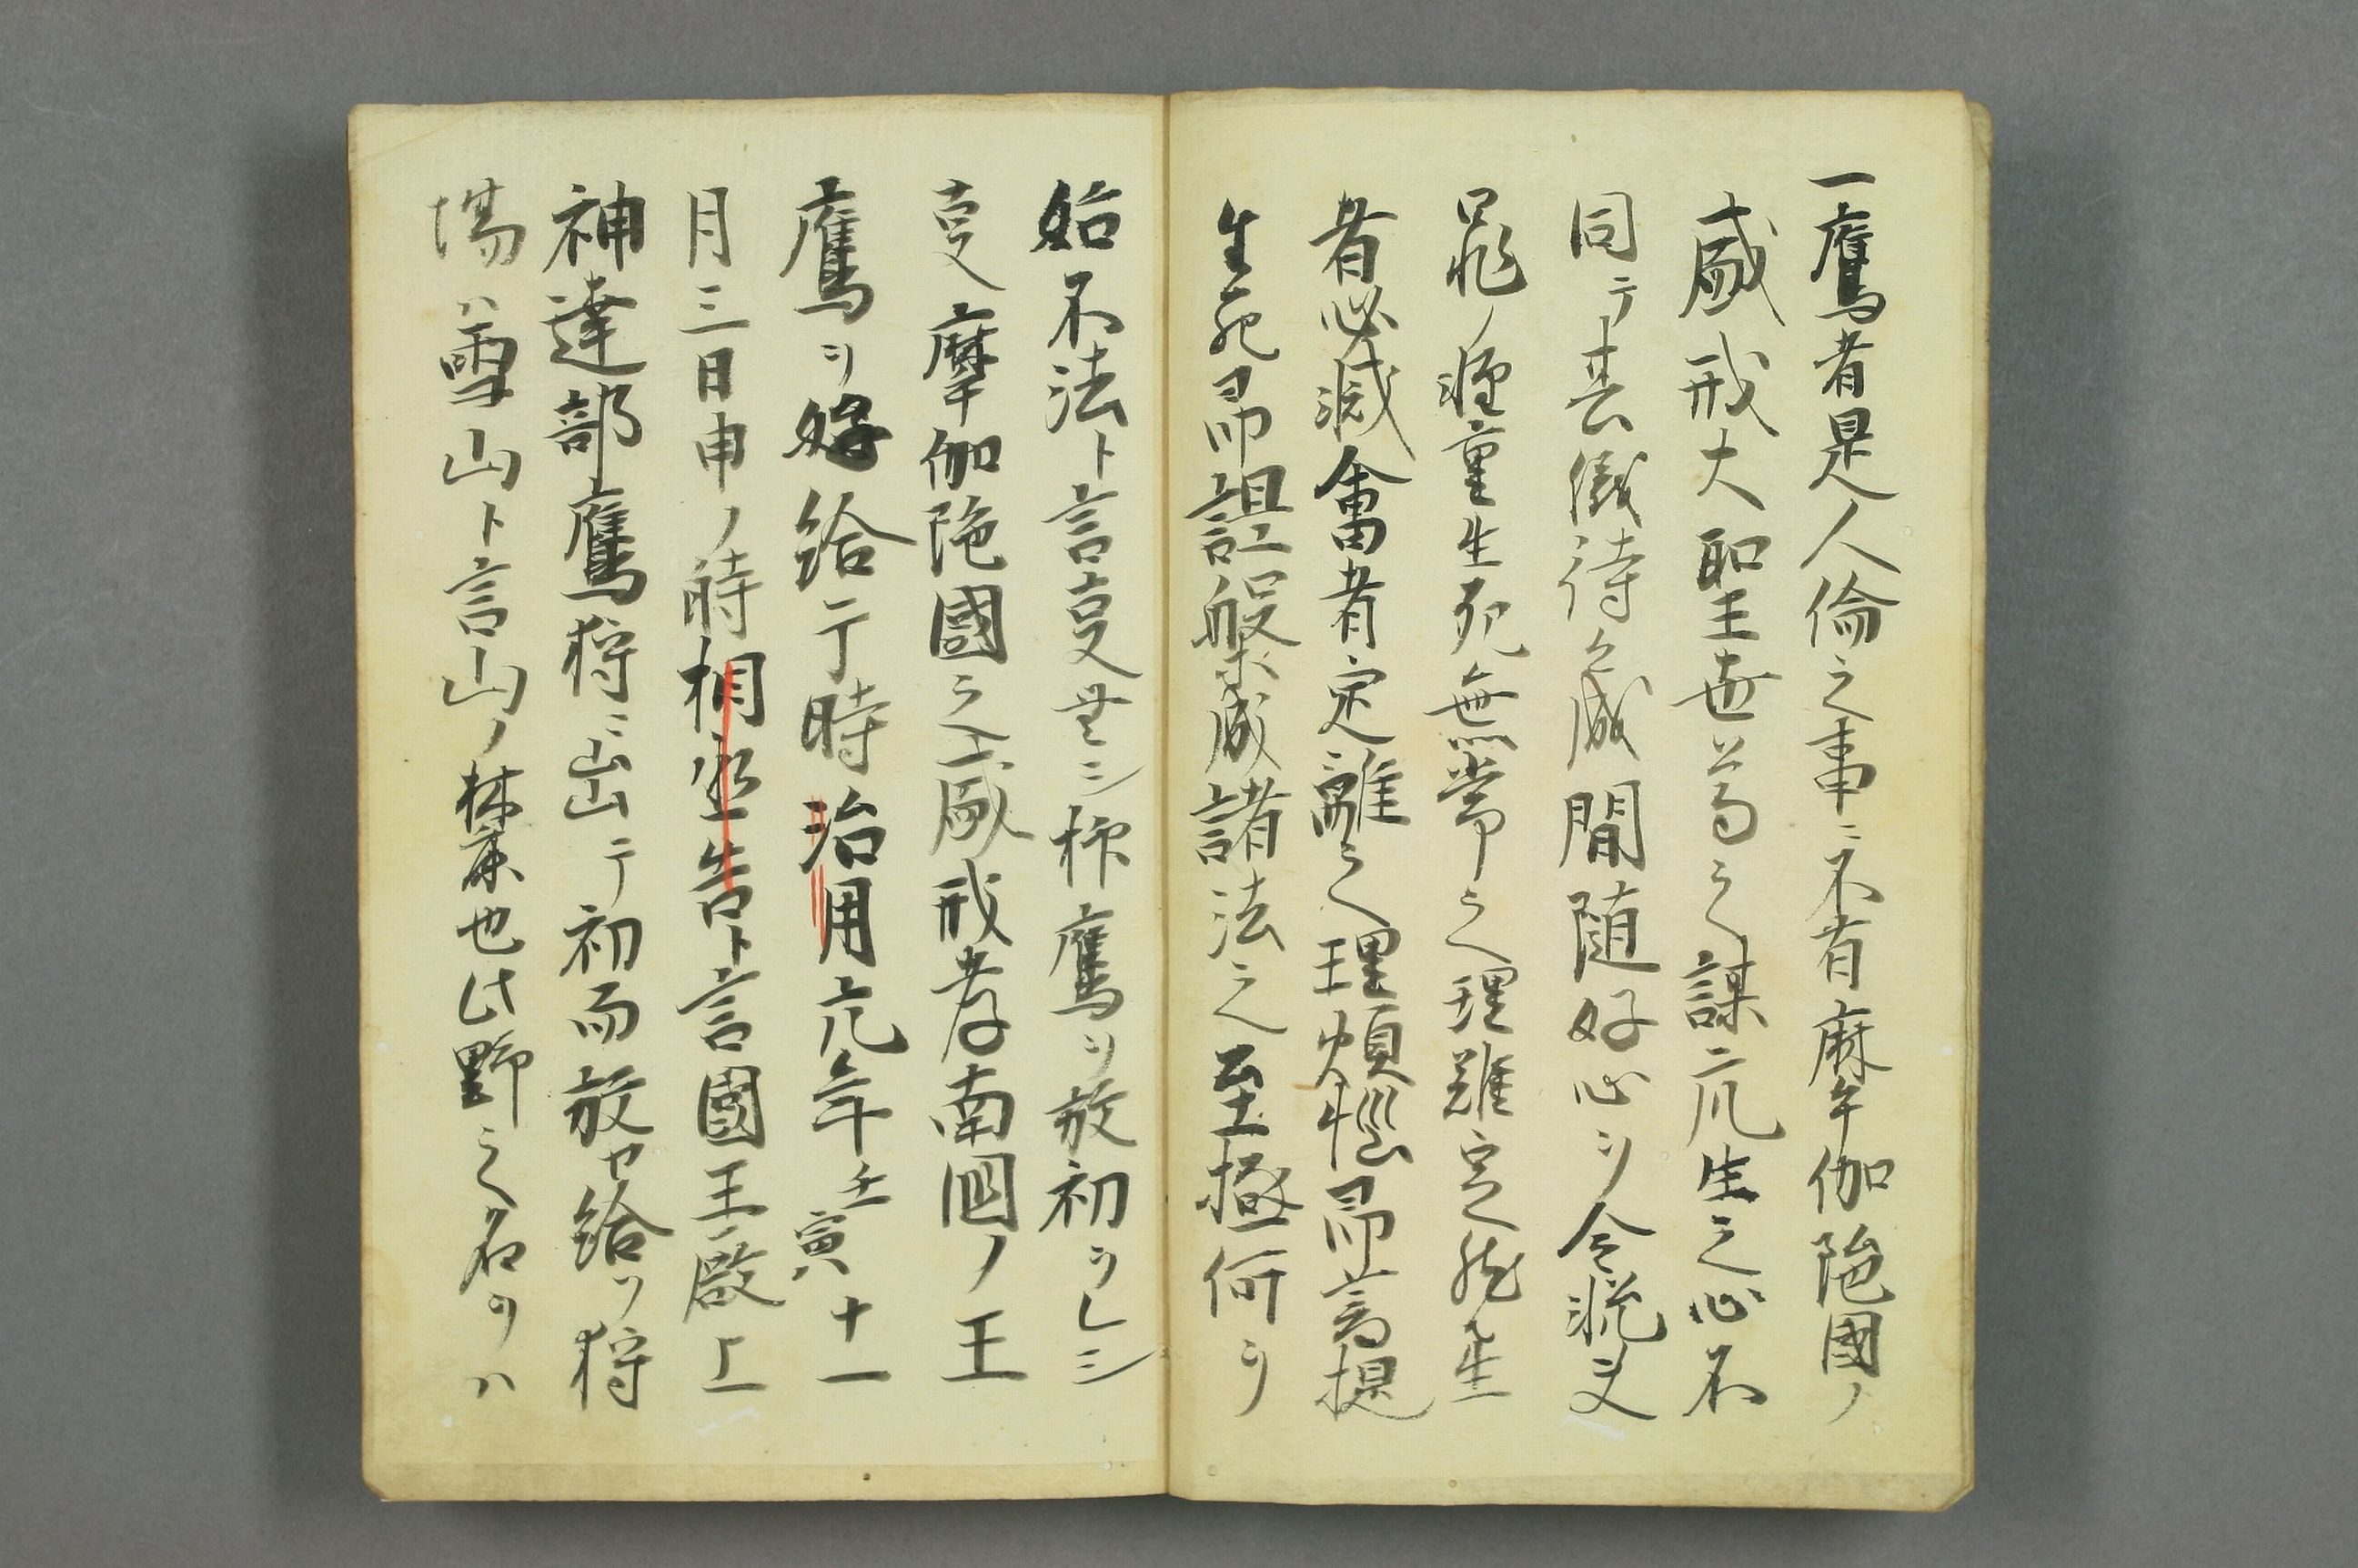 一鷹者是人倫之事ニ不有麻伽陁國ノ
威戒大聖王世ニ為之謀二凡生之心不
同テ其儀待之處間随好心ヲ令
罪ノ軽重生死無常之理難定然生
者必滅會者定離之理煩惱即菩提
生死即涅槃成諸法之至極何ヲ
始不法ト言叓無シ柿鷹ヲ放初ヲレシ
叓摩伽陁國之威戒孝南國ノ王
鷹ヲ好給テ時治用元年壬寅十一
月三日申ノ時相丞告ト言國王殿上
神達部鷹狩ニ出テ初而放セ給ヲ狩
場ハ雪山ト言山ノ林也此野之名ヲハ